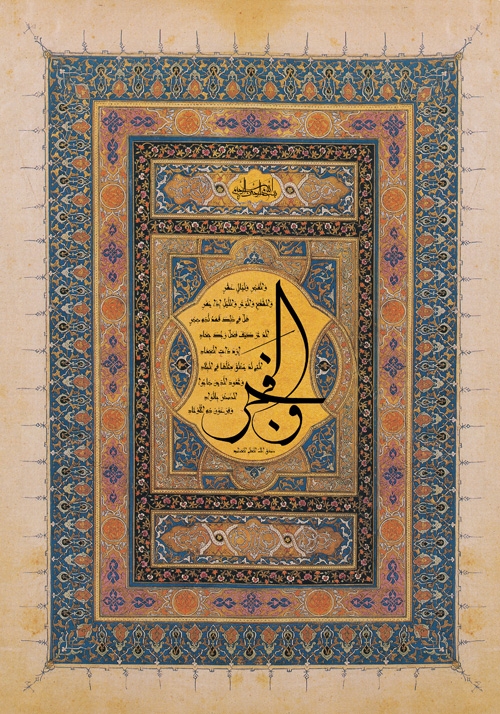 بسم الله الرحمن الرحيم
والفجر وليال عشر
والشفع والوتر والليل إذا يسر
هل في ذلك قسم لذي حجر
ألم تر كيف فعل ربك بعاد
إرم ذات العماد
التي لم يخلق مثلها في البلاد
وثمود الذين جابوا
الصخر بالواد
وفرعون ذي الأوتاد
والفجر
صدق الله العلي العظيم